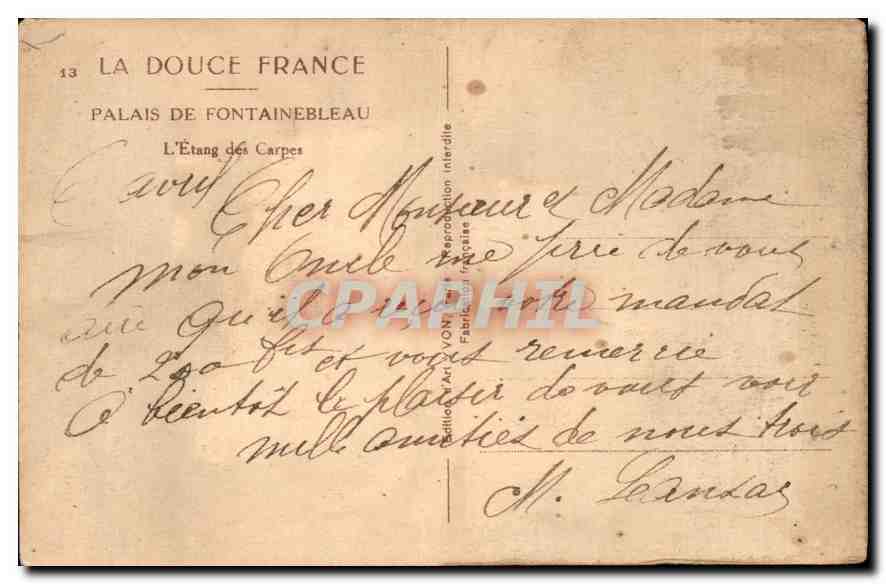 13 LA DOUCE FRANCE
PALAIS DE FONTAINEBLEAU
L'Étang des Carpes
avril
Cher Monsieur et Madame
mon Oncle me prie de vous
dire qu'il a reçu votre mandat
de 200 frs et vous remercie
A bientôt le plaisir de vous voir
mille amitiés de nous trois
M.
Éditions d'Art YVON, Reproduction interdite
Fabrication française
CPAPHIL